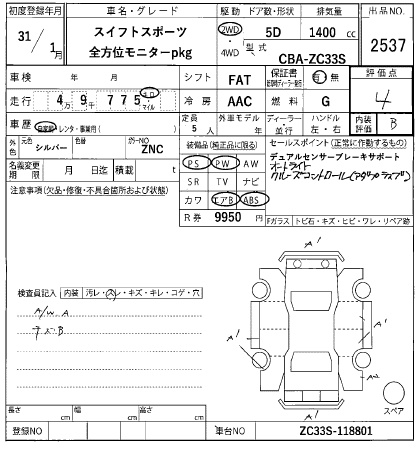 初度登録年月 車名・グレード 駆動 ドア数・形状 排気量 出品NO.
31 1月 スイフトスポーツ 2WD 5D 1400 cc 2537
全方位モニターpkg ・4WD 型式 CBA-ZC33S
車検 年 月 シフト FAT 保証書 有 無 評価点
走行 4万9千775 キロ マイル 冷房 AAC 燃料 G 4
車歴 自家用・レンタ・事業用( ) 定員 5人 外車モデル 年 ディーラー・並行 ハンドル 左・右 内装評価 B
外色 元色 シルバー 色替 カラーNO ZNC 装備品(純正品に限る) セールスポイント(正常に作動するもの)
名義変更期限 月 日迄 積載 t PS PW AW デュアルセンサーブレーキサポート
注意事項(欠品・修復・不具合箇所および状態) SR TV ナビ オートライト
カワ エアB ABS クルーズコントロール(アダプティブ)
R券 9950円 Fガラス トビ石・キズ・ヒビ・ワレ・リペア跡
A1
検査員記入 内装 汚レ・スレ・キズ・キレ・コゲ・穴
A/W A
A1 A1
A2
長さ cm 幅 cm 高さ cm A1 スペア
登録NO 車台NO ZC33S-118801